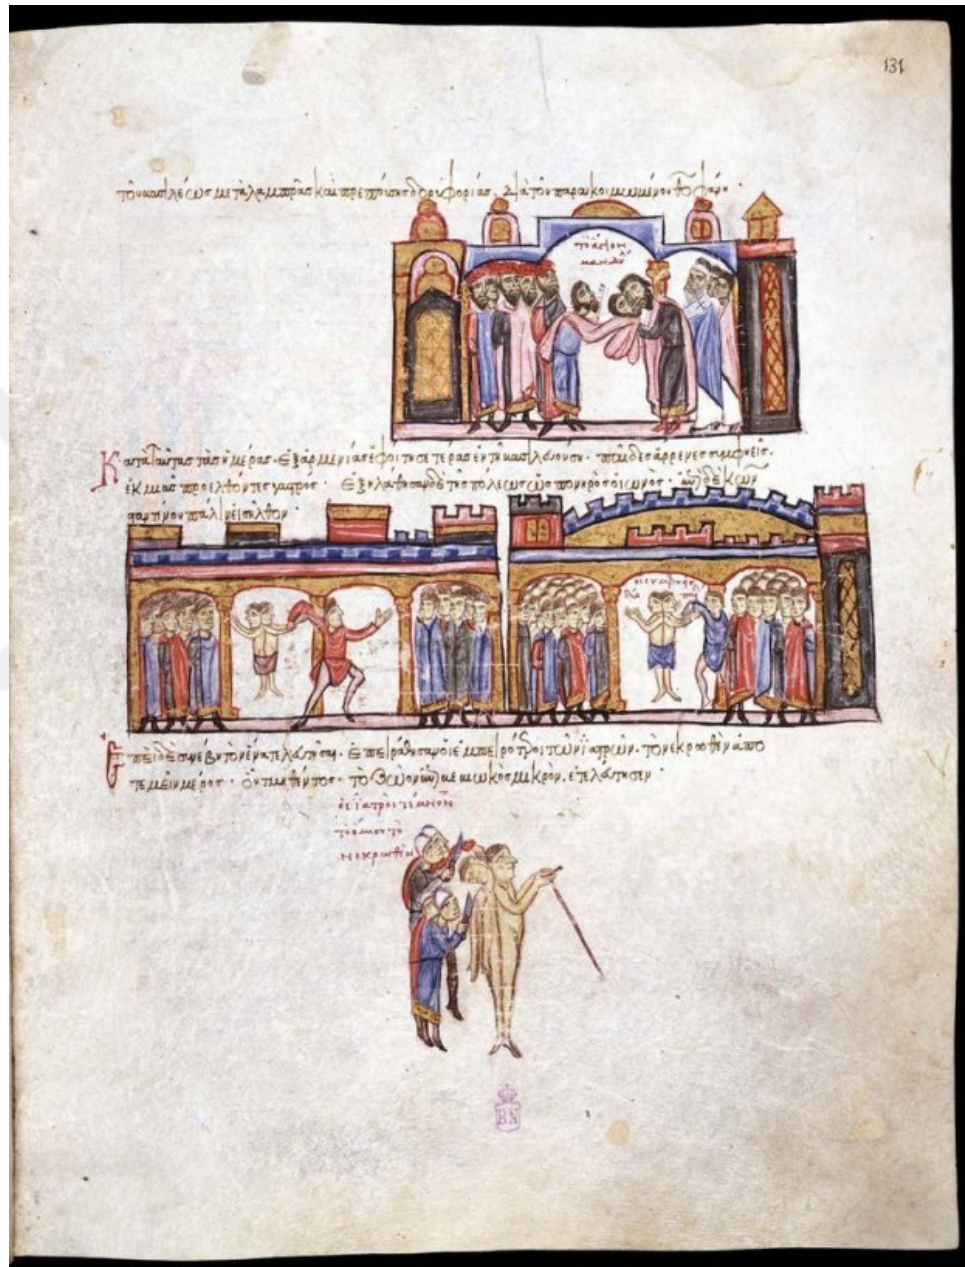 131
τοῦ βασιλέως μετὰ λαμπρᾶς καὶ πρεπούσης δορυφορίας. διὰ τοῦ παρακοιμωμένου θεοφάν
τὸ ἅγιον
μανδύ
Κατὰ ταύτας τὰς ἡμέρας. ἐξ ἀρμενίας ἐφοίτησε τέρας ἐν τῇ βασιλευούσῃ. παῖδες ἄρρενες συμφυεῖς.
ἐκ μιᾶς προελθόντες γαστρός. ἐξηλάθησαν δὲ τῆς πόλεως ὡς πονηρὸς οἰωνός. ἐπὶ δὲ κων
σταντίνου πάλιν εἰσῆλθον.
οἱ συμφυεῖς
Ἐπεὶ δὲ συνέβη τὸν ἕνα τελευτῆσαι. ἐπειράθησαν οἱ ἐμπειρότεροι τῶν ἰατρῶν. τὸ νεκρωθὲν ἀπο
τεμεῖν μέρος. οὗ τμηθέντος. τὸ ζῶον μικρὸν. ἐτελεύτησεν
οἱ ἰατροὶ τέμνον
τὸ
νεκρωθέν
BN